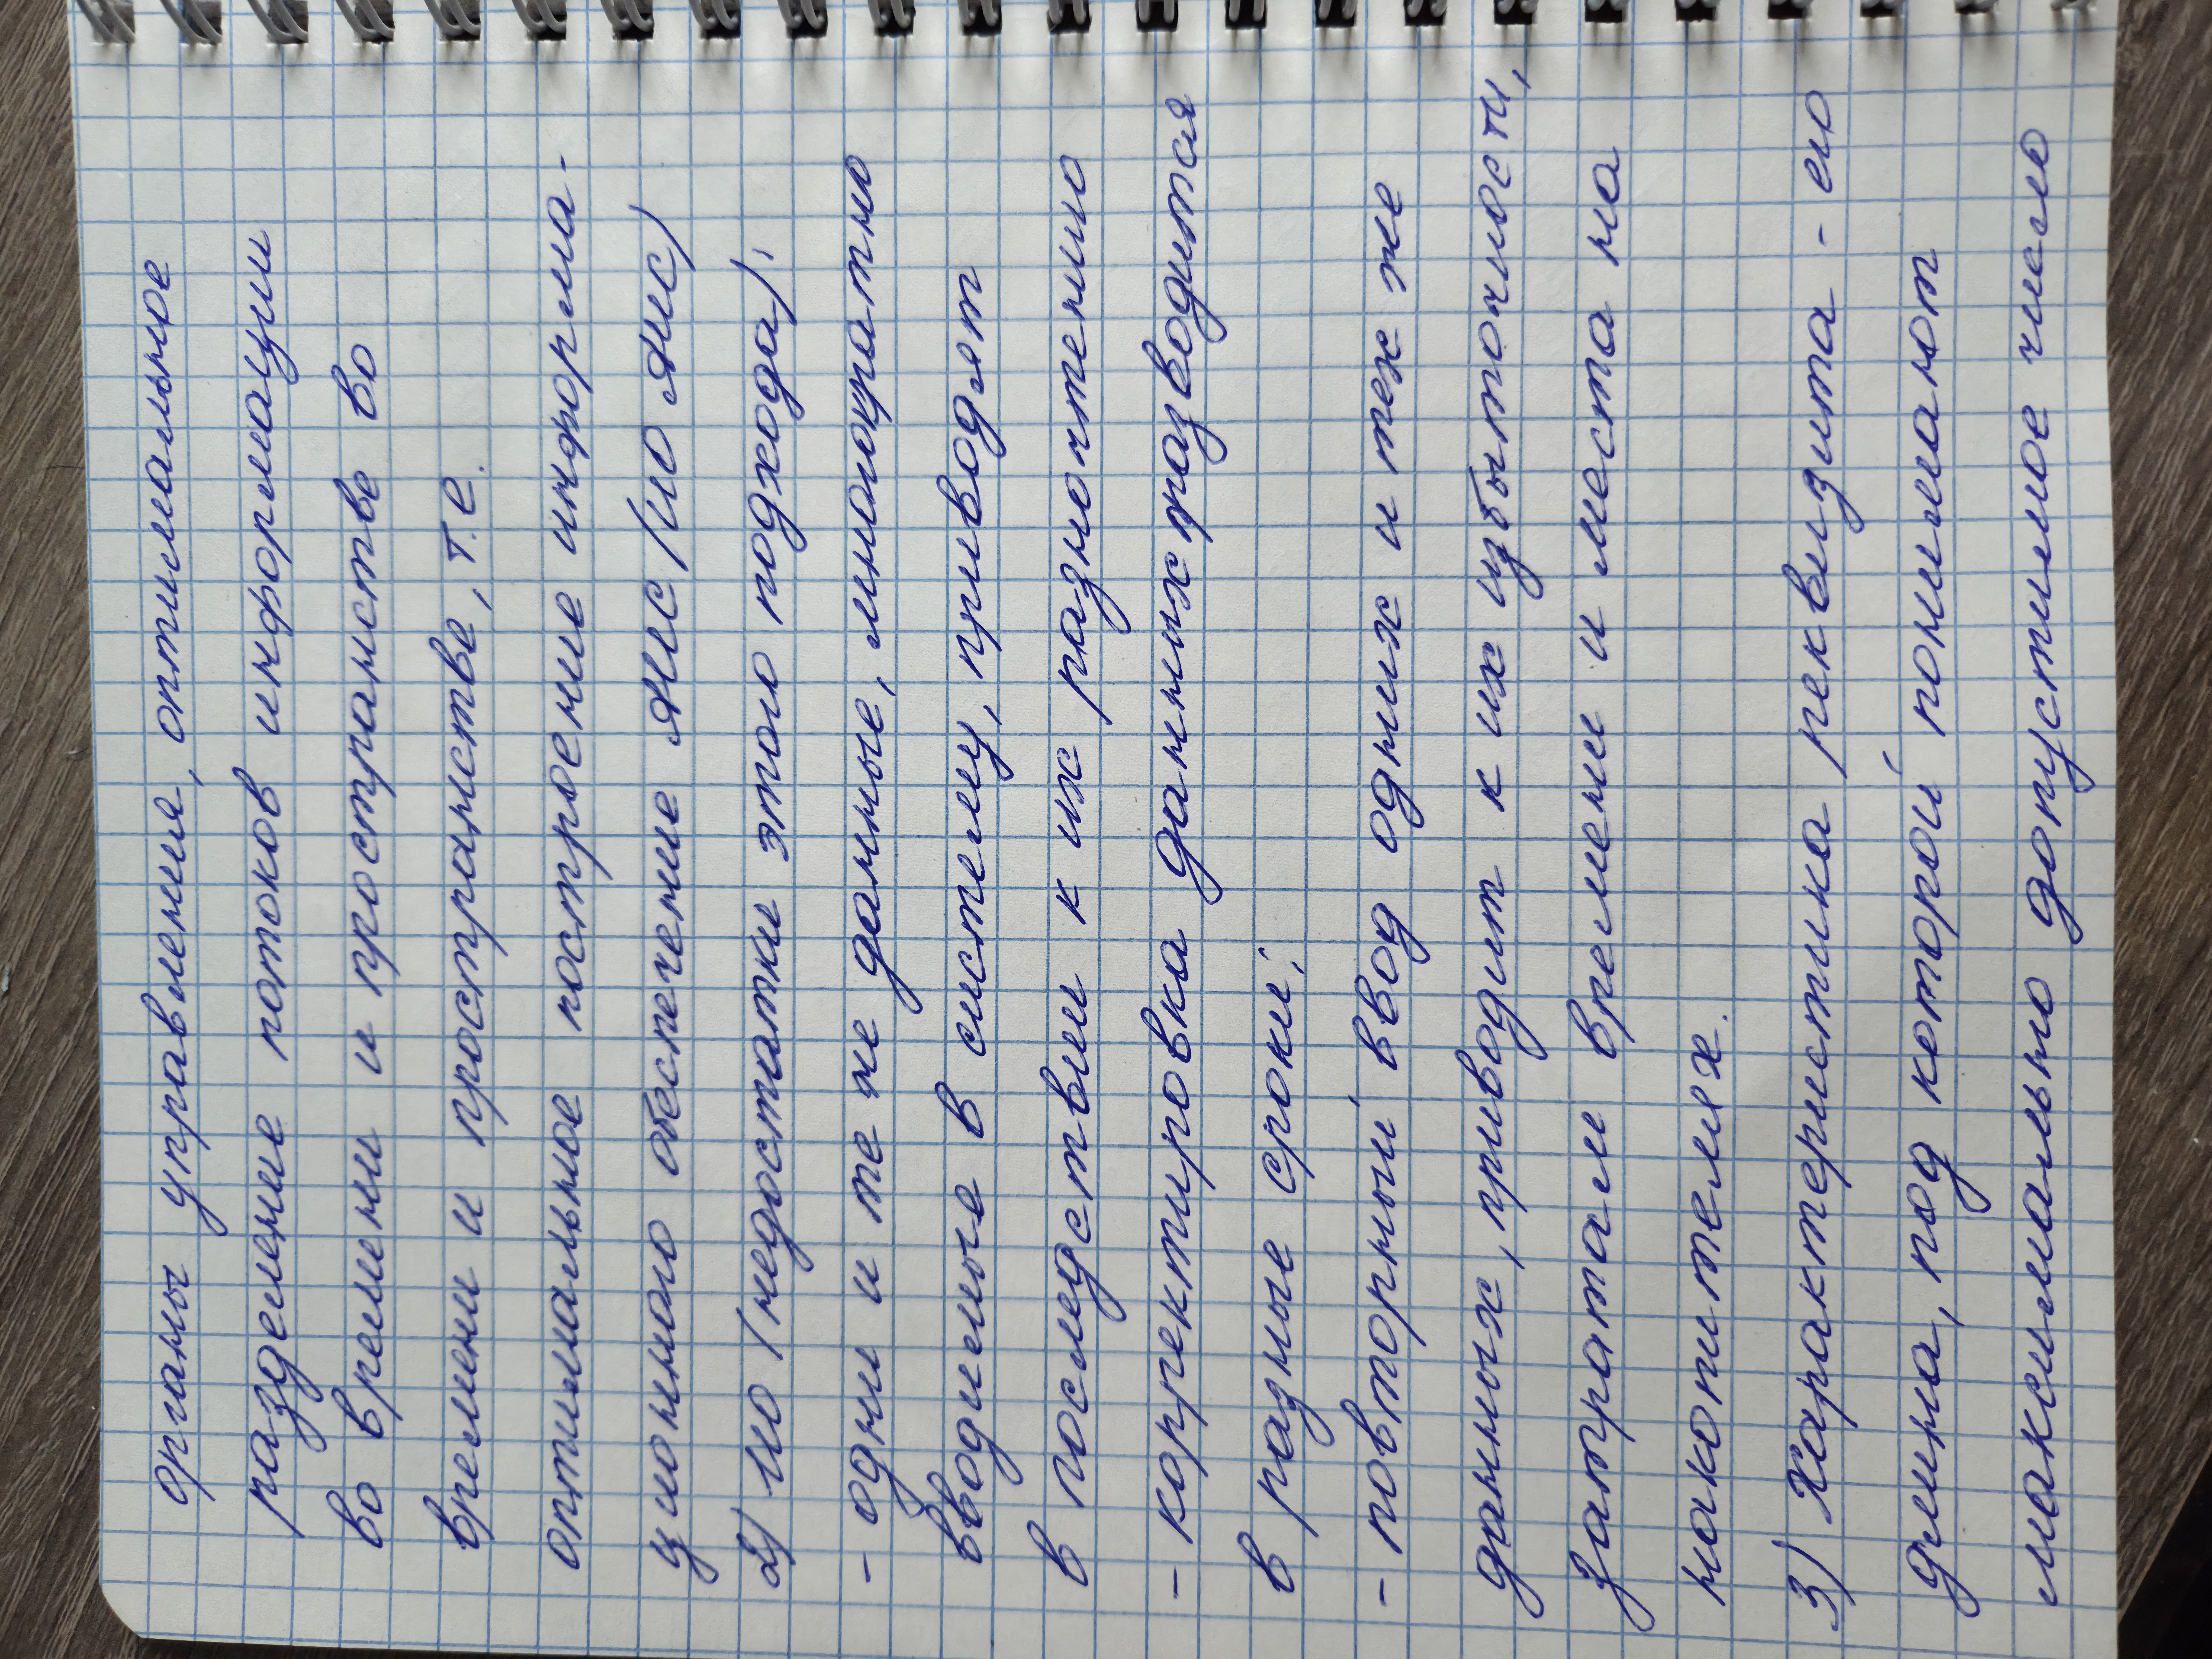 органы управления, оптимальное
разделение потоков информации
во времени и пространстве во
времени и пространстве, т.е.
оптимальное построение информа-
ционного обеспечение АИС (ИО АИС)
2) ИО (недостатки этого подхода):
- одни и те же данные, многократно
вводимые в систему, приводят
в последствии к их разночтению
- корректировка данных праизводится
в разные сроки;
- повторный ввод одних и тех же
данных, приводит к их избыточности,
затратам времени и места на
накопителях.
3) Характеристика реквизита - его
длина, под которой понимают
максимально допустимое число